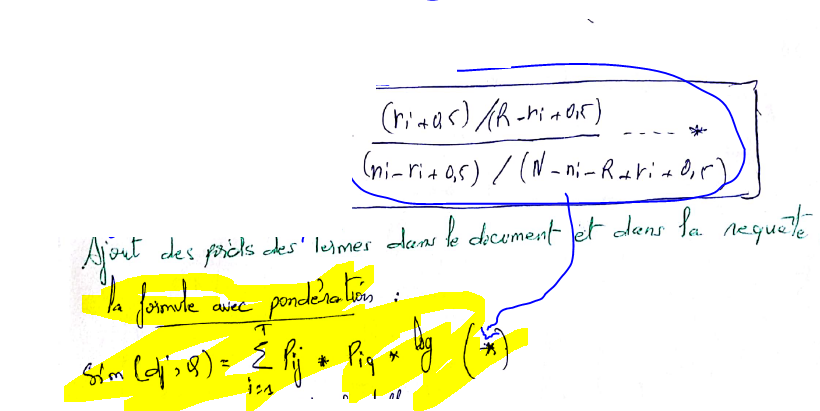 (ri+0,5)/(R-ri+0,5)
---- *
(ni-ri+0,5) / (N-ni-R+ri+0,5)
Ajout des poids des termes dans le document et dans la requête
la formule avec pondération :
Sim(dj,Q) = T∑i=1 Pij * Piq * log (*)